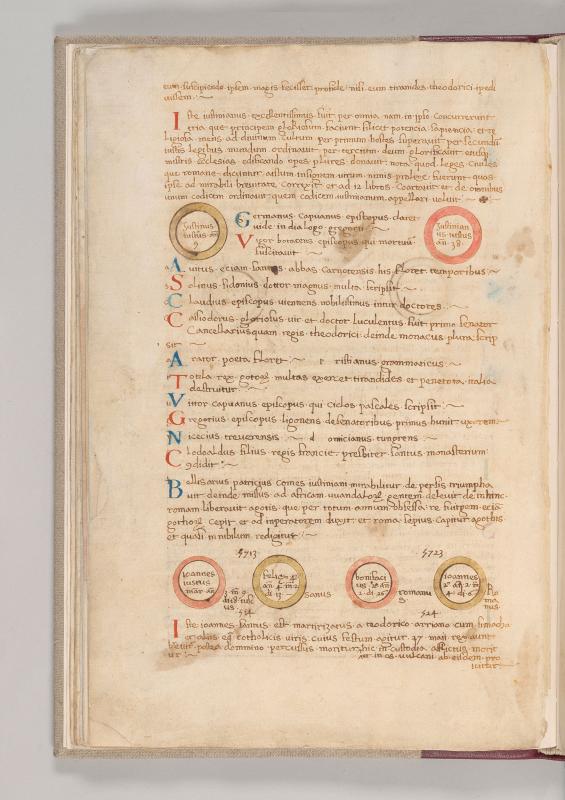 eum suscipiendo ipsem magis fecisset proinde nisi eum tirandes theodorici ipedi
uissem
Iste iustinianus excellentissimus fuit per omnia nam in ipso concurrerunt
tria que principem gloriosum faciunt silicet potencia sapiencia et re
ligiosa mens et diuinum cultum per primum hostes superauit per secundum
iustis legibus mundum ordinauit per tercium deum glorificauit eiusque
ministris ecclesias edificando opes plures donauit nota quod leges ciuiles
que romane dicuntur
ipse ad mirabili breuitate correxit et ad 12 libros coartauit et de omnibus
unum codicem ordinauit quem codicem iustinianum appellari uoluit
Iustinus
iustus an
9
Germanus capuanus episcopus claret
uide in dialogo gregorii
V episcopus qui mortuum
suscitauit
Iustinian
us iustus
an 38
Auitus eciam santus abbas carnotensis his floret temporibus
Solinus sidonius dottor magnus multa scripsit
Claudius episcopus uienensis nobilissimus inter doctores
Cassiodorus gloriosus uir et doctor luculentus fuit primo senator
Cancellariusquam regis theodorici deinde monacus plura scrip
sit
Arator poeta floret pristianus grammaticus
Totila rex gotorum multas exercet tirandides et penetota italia
destruitur
Vittor capuanus episcopus qui ciclos pascales scripsit
Gregorius episcopus ligonens de senatoribus primus hunit uxorem
Nicecius treuerensis domicianus tungrens
Clodoaldus filius regis francie presbiter santus monasterium
9didit
Bellisarius patricius comes iustiniani mirabilitur de persis triumpha
uit deinde missus ad africam uuandalorum gentem deleuit de in hinc
romam liberauit agotis que per totum annum obsessa re fuit regem eciam
gothorum cepit et ad inperatorem duxit et roma sepius capitur agothis
et quasi in nihilum redigitur
5713
5723
Ioannes
iustus
mar an
2 m 9
Felix 4
an 4 m 2
di 13
sanus
bonifaci
us 2 an
2 di 26
romanu
s
Ioannes
an 2 m
4 di 6
Ro
ma
nus
524
524
Iste ioannes santus est martirizatus a teodorico arriano cum simacho
et aliis eque catholicis uiris cuius festum agitur 27 maii rex aunt
breuit postea dommino percussus moritur hic in custodia afflictus morit
ur
in os uulcani ab eisdem pro
iicitur